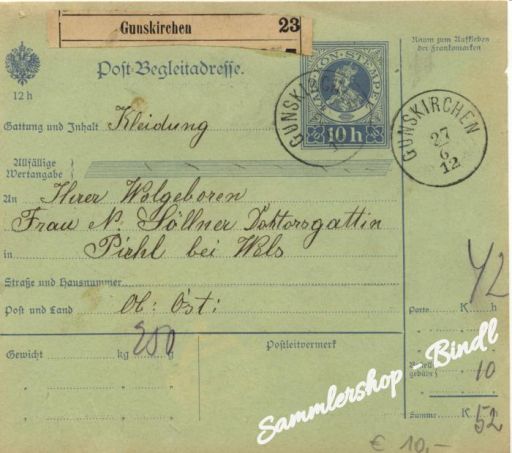 Gunskirchen 23
Post-Begleitadresse.
Raum zum Aufkleben
der Frankomarken
12 h
KAIS. KÖN. STEMPEL
10 h
GUNSKIRCHEN
GUNSKIRCHEN
27
6
12
Gattung und Inhalt Kleidung
Allfällige
Wertangabe
An Ihrer Wolgeboren
Frau N. Söllner Doktorsgattin
in Pichl bei Wels
Straße und Hausnummer
Post und Land Ob: Öst:
Gewicht kg 250
Postleitvermerk
Porto K h
42
10
Summe K 52
Sammlershop - Bindl
€ 10,-